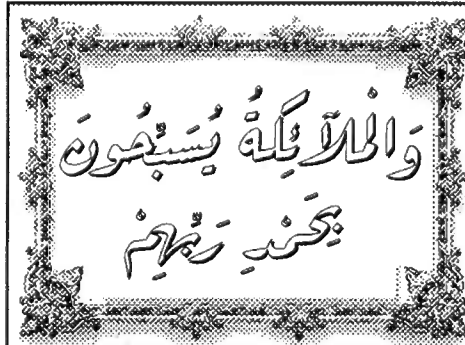 وَالْمَلَآئِكَةُ يُسَبِّحُونَ
بِحَمْدِ رَبِّهِمْ